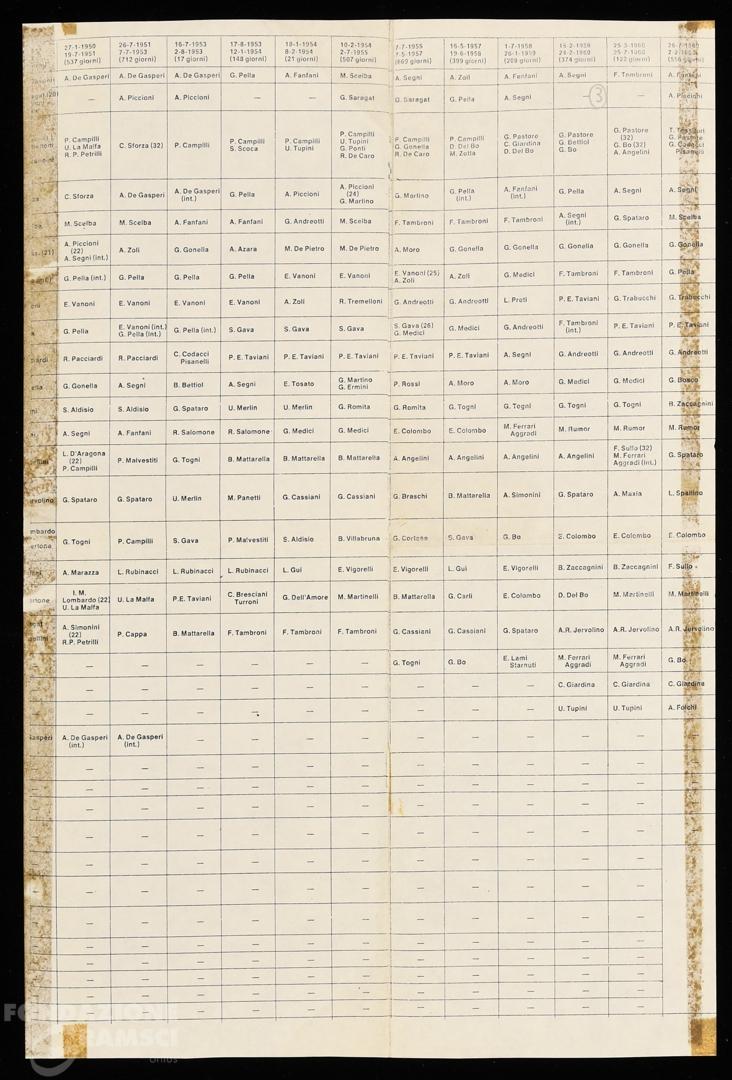 27-1-1950 26-7-1951 16-7-1953 17-8-1953 18-1-1954 10-2-1954 7-7-1955 16-5-1957 1-7-1958 15-2-1959 25-3-1960
19-7-1951 7-7-1953 2-8-1953 12-1-1954 8-2-1954 2-7-1955 19-6-1958 26-1-1959
(537 giorni) (712 giorni) (17 giorni) (148 giorni) (21 giorni) (507 giorni) (669 giorni) (399 giorni) (209 giorni) (374 giorni) (122 giorni)
A. De Gasperi A. De Gasperi A. De Gasperi G. Pella A. Fanfani M. Scelba A. Segni A. Zoli A. Fanfani A. Segni F. Tambroni A. Fanfani
(20) — A. Piccioni A. Piccioni — — G. Saragat G. Saragat G. Pella A. Segni — 3 — A. Piccioni
P. Campilli U. La Malfa R. P. Petrilli
C. Sforza (32)
P. Campilli
P. Campilli S. Scoca
P. Campilli U. Tupini
P. Campilli U. Tupini G. Ponti R. De Caro
P. Campilli G. Gonella R. De Caro
P. Campilli D. Del Bo M. Zotta
G. Pastore C. Giardina D. Del Bo
G. Pastore G. Bettiol G. Bo
G. Pastore (32) G. Bo (32) A. Angelini
C. Sforza A. De Gasperi A. De Gasperi (int.) G. Pella A. Piccioni A. Piccioni (24) G. Martino G. Martino G. Pella (int.) A. Fanfani (int.) G. Pella A. Segni A. Segni
M. Scelba M. Scelba A. Fanfani A. Fanfani G. Andreotti M. Scelba F. Tambroni F. Tambroni F. Tambroni A. Segni (int.) G. Spataro M. Scelba
(21) A. Piccioni (22) A. Segni (int.) A. Zoli G. Gonella A. Azara M. De Pietro M. De Pietro A. Moro G. Gonella G. Gonella G. Gonella G. Gonella G. Gonella
G. Pella (int.) G. Pella G. Pella G. Pella E. Vanoni E. Vanoni E. Vanoni (25) A. Zoli A. Zoli G. Medici F. Tambroni F. Tambroni G. Pella
E. Vanoni E. Vanoni E. Vanoni E. Vanoni A. Zoli R. Tremelloni G. Andreotti G. Andreotti L. Preti P. E. Taviani G. Trabucchi G. Trabucchi
G. Pella E. Vanoni (int.) G. Pella (int.) G. Pella (int.) S. Gava S. Gava S. Gava S. Gava (26) G. Medici G. Medici G. Andreotti F. Tambroni (int.) P. E. Taviani P. E. Taviani
R. Pacciardi R. Pacciardi C. Codacci Pisanelli P. E. Taviani P. E. Taviani P. E. Taviani P. E. Taviani P. E. Taviani A. Segni G. Andreotti G. Andreotti G. Andreotti
G. Gonella A. Segni B. Bettiol A. Segni E. Tosato G. Martino G. Ermini P. Rossi A. Moro A. Moro G. Medici G. Medici G. Bosco
S. Aldisio S. Aldisio G. Spataro U. Merlin U. Merlin G. Romita G. Romita G. Togni G. Togni G. Togni G. Togni B. Zaccagnini
A. Segni A. Fanfani R. Salomone R. Salomone G. Medici G. Medici E. Colombo E. Colombo M. Ferrari Aggradi M. Rumor M. Rumor M. Rumor
L. D'Aragona (22) P. Campilli P. Malvestiti G. Togni B. Mattarella B. Mattarella B. Mattarella A. Angelini A. Angelini A. Angelini A. Angelini F. Sullo (32) M. Ferrari Aggradi (int.) G. Spataro
G. Spataro G. Spataro U. Merlin M. Panetti G. Cassiani G. Cassiani G. Braschi B. Mattarella A. Simonini G. Spataro A. Maxia L. Spallino
G. Togni P. Campilli S. Gava P. Malvestiti S. Aldisio B. Villabruna G. Cortese S. Gava G. Bo E. Colombo E. Colombo E. Colombo
A. Marazza L. Rubinacci L. Rubinacci L. Rubinacci L. Gui E. Vigorelli E. Vigorelli L. Gui E. Vigorelli B. Zaccagnini B. Zaccagnini F. Sullo
I. M. Lombardo (22) U. La Malfa U. La Malfa P.E. Taviani C. Bresciani Turroni G. Dell'Amore M. Martinelli B. Mattarella G. Carli E. Colombo D. Del Bo M. Martinelli M. Martinelli
A. Simonini (22) R.P. Petrilli P. Cappa B. Mattarella F. Tambroni F. Tambroni F. Tambroni G. Cassiani G. Cassiani G. Spataro A.R. Jervolino A.R. Jervolino A.R. Jervolino
— — — — — — G. Togni G. Bo E. Lami Starnuti M. Ferrari Aggradi M. Ferrari Aggradi G. Bo
— — — — — — — — — C. Giardina C. Giardina C. Giardina
— — — — — — — — — U. Tupini U. Tupini A. Folchi
A. De Gasperi (int.) A. De Gasperi (int.) — — — — — — — — —
FONDAZIONE
GRAMSCI